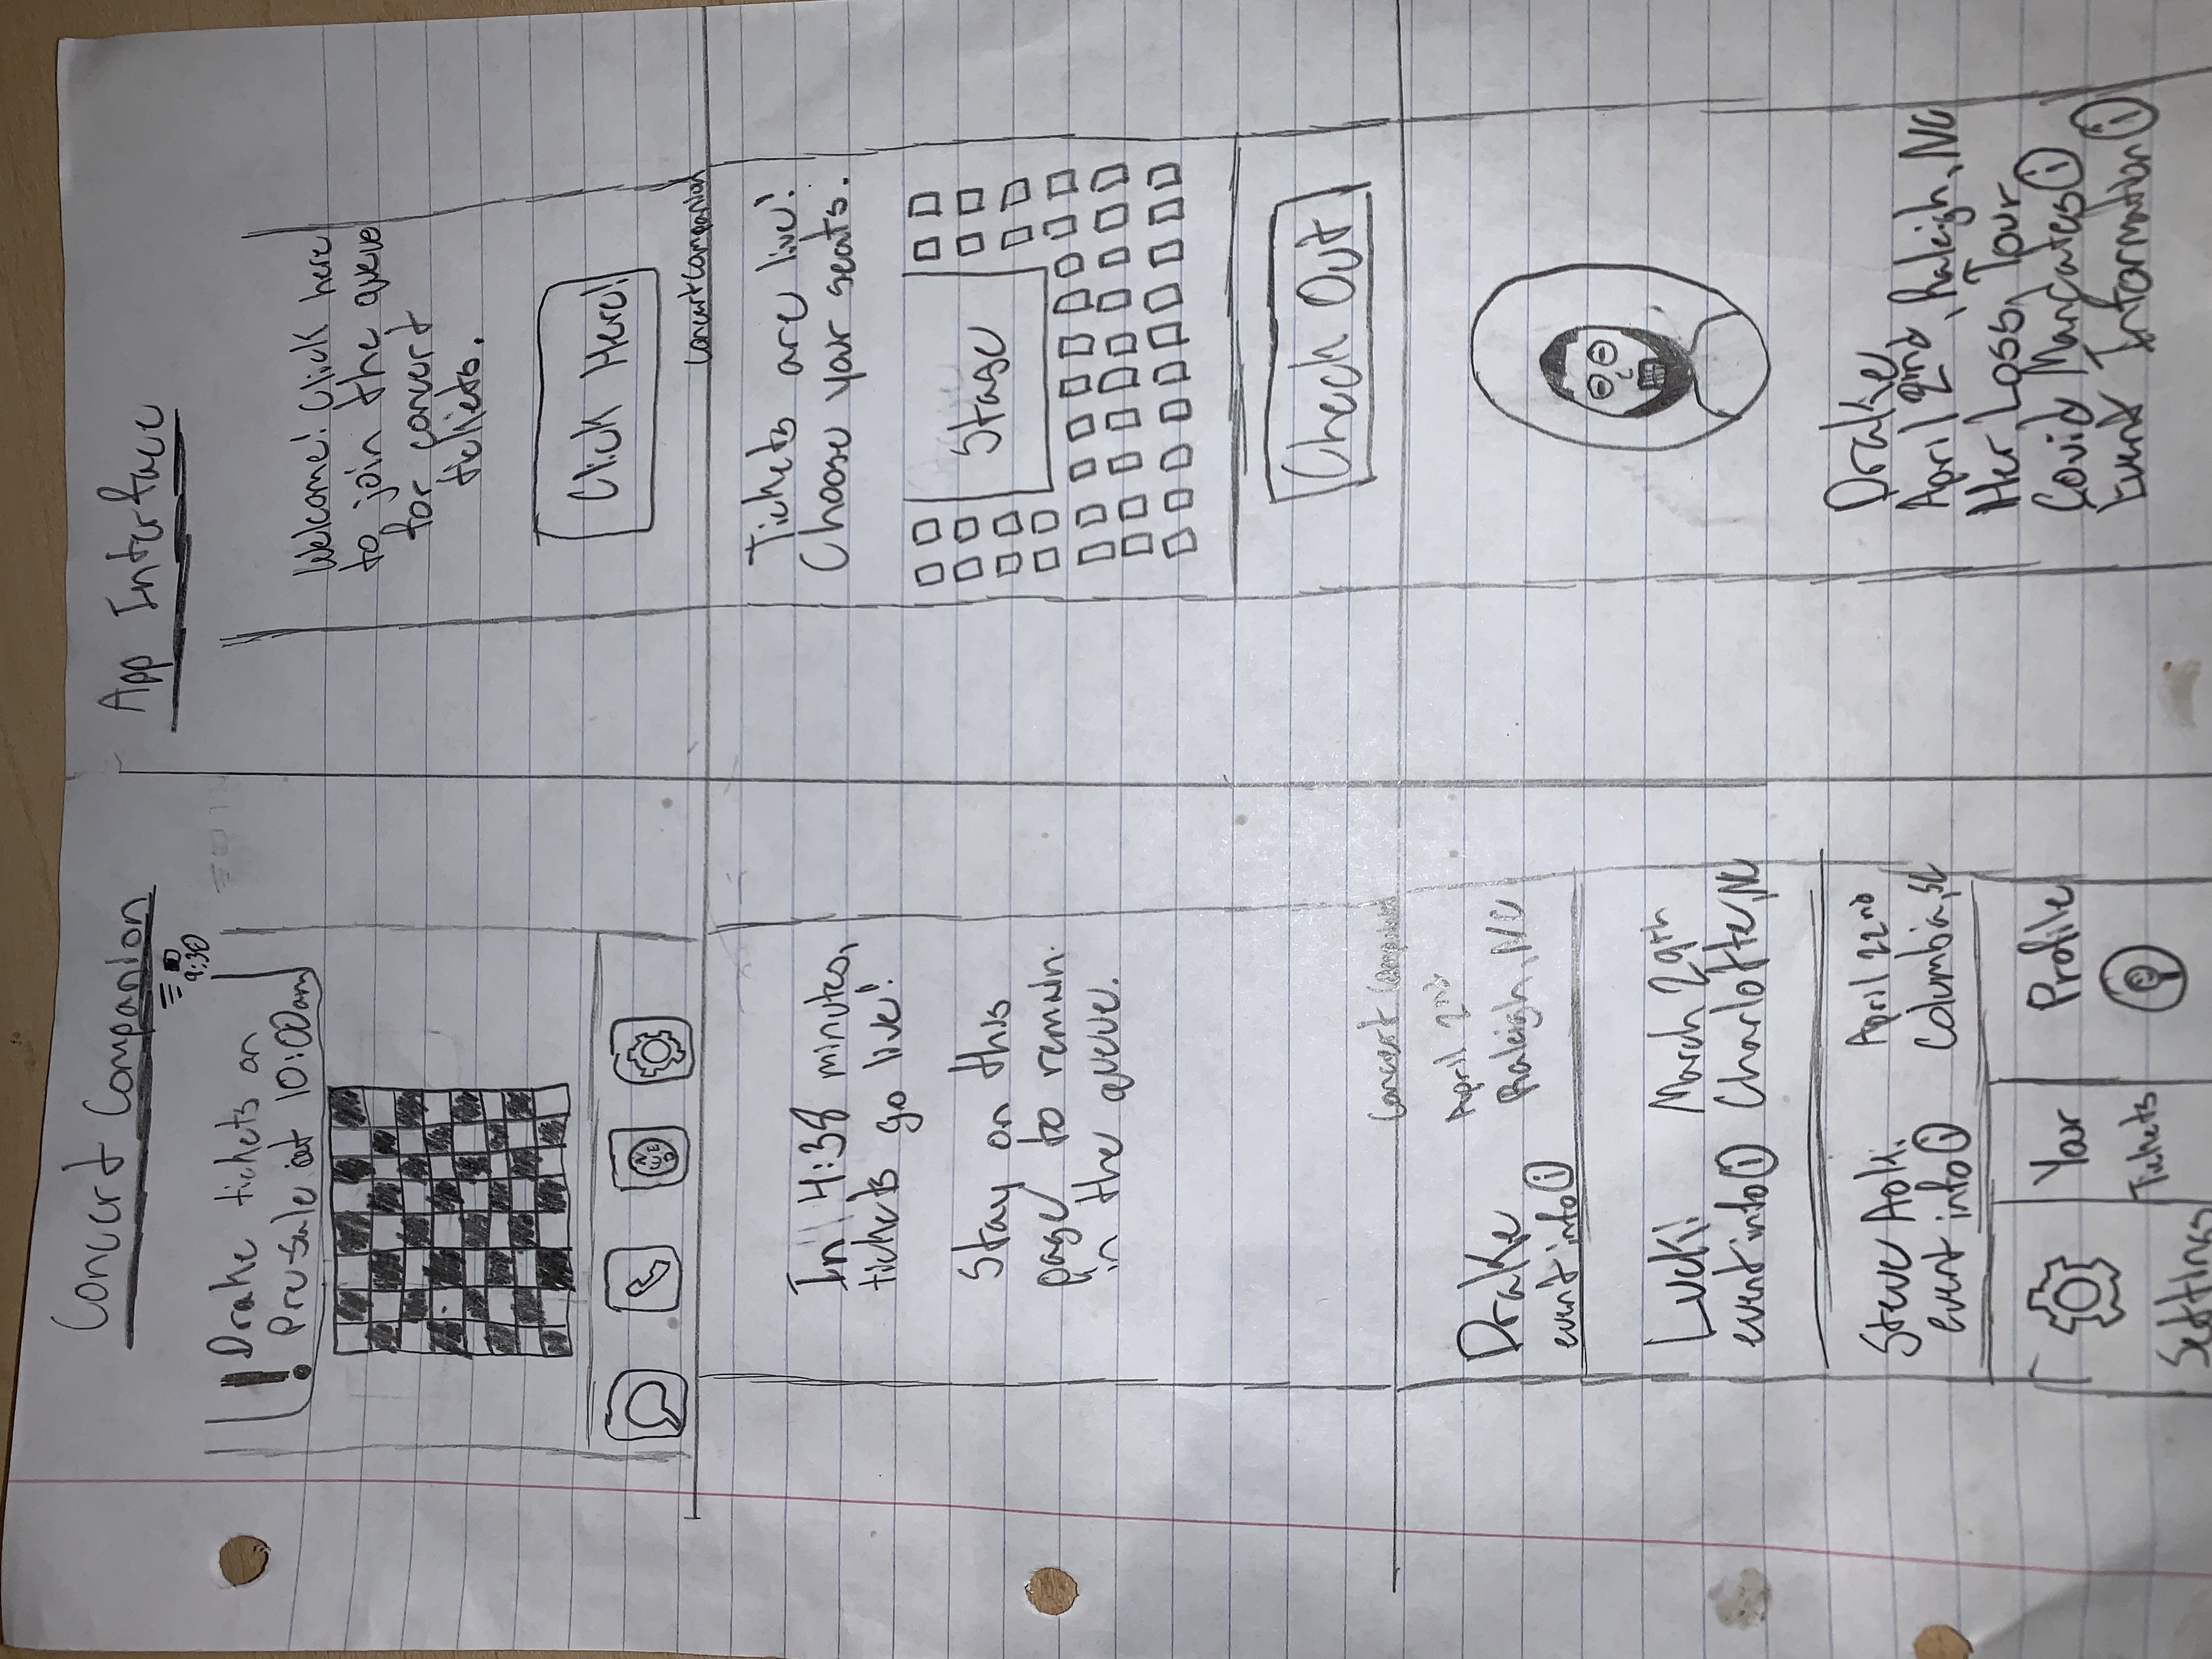 Concert Companion
App Interface
9:30
! Drake tickets on
Pre-sale at 10:00am
Welcome! Click here
to join the queue
for concert
tickets.
Click Here!
In 4:38 minutes,
tickets go live!
Stay on this
page to remain
in the queue.
Concert Companion
Tickets are live!
Choose your seats.
Stage
Check Out
Concert Companion
Drake
April 2nd
Raleigh, NC
event info i
Lucki
March 29th
event info i
Charlotte, NC
Steve Aoki
April 22nd
event info i
Columbia, SC
Settings
Your
Tickets
Profile
Drake,
April 2nd, Raleigh, NC
Her Loss Tour
Covid Mandates i
Event Information i